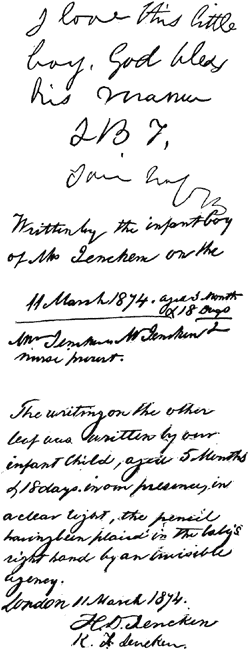 I love this little
boy. God bless
his mamma
J B T.
I am hap
Written by the infant boy
of Mrs Jencken on the
11 March 1874. aged 5 Month
& 18 Days
Mrs Jencken Mr Jencken &
nurse present.
The writing on the other
leaf was written by our
infant Child, aged 5 Months
& 18 days. in our presence, in
a clear light, the pencil
having been placed in the baby's
right hand by an invisible
agency.
London 11 March 1874.
H. D. Jencken
K. F. Jencken.